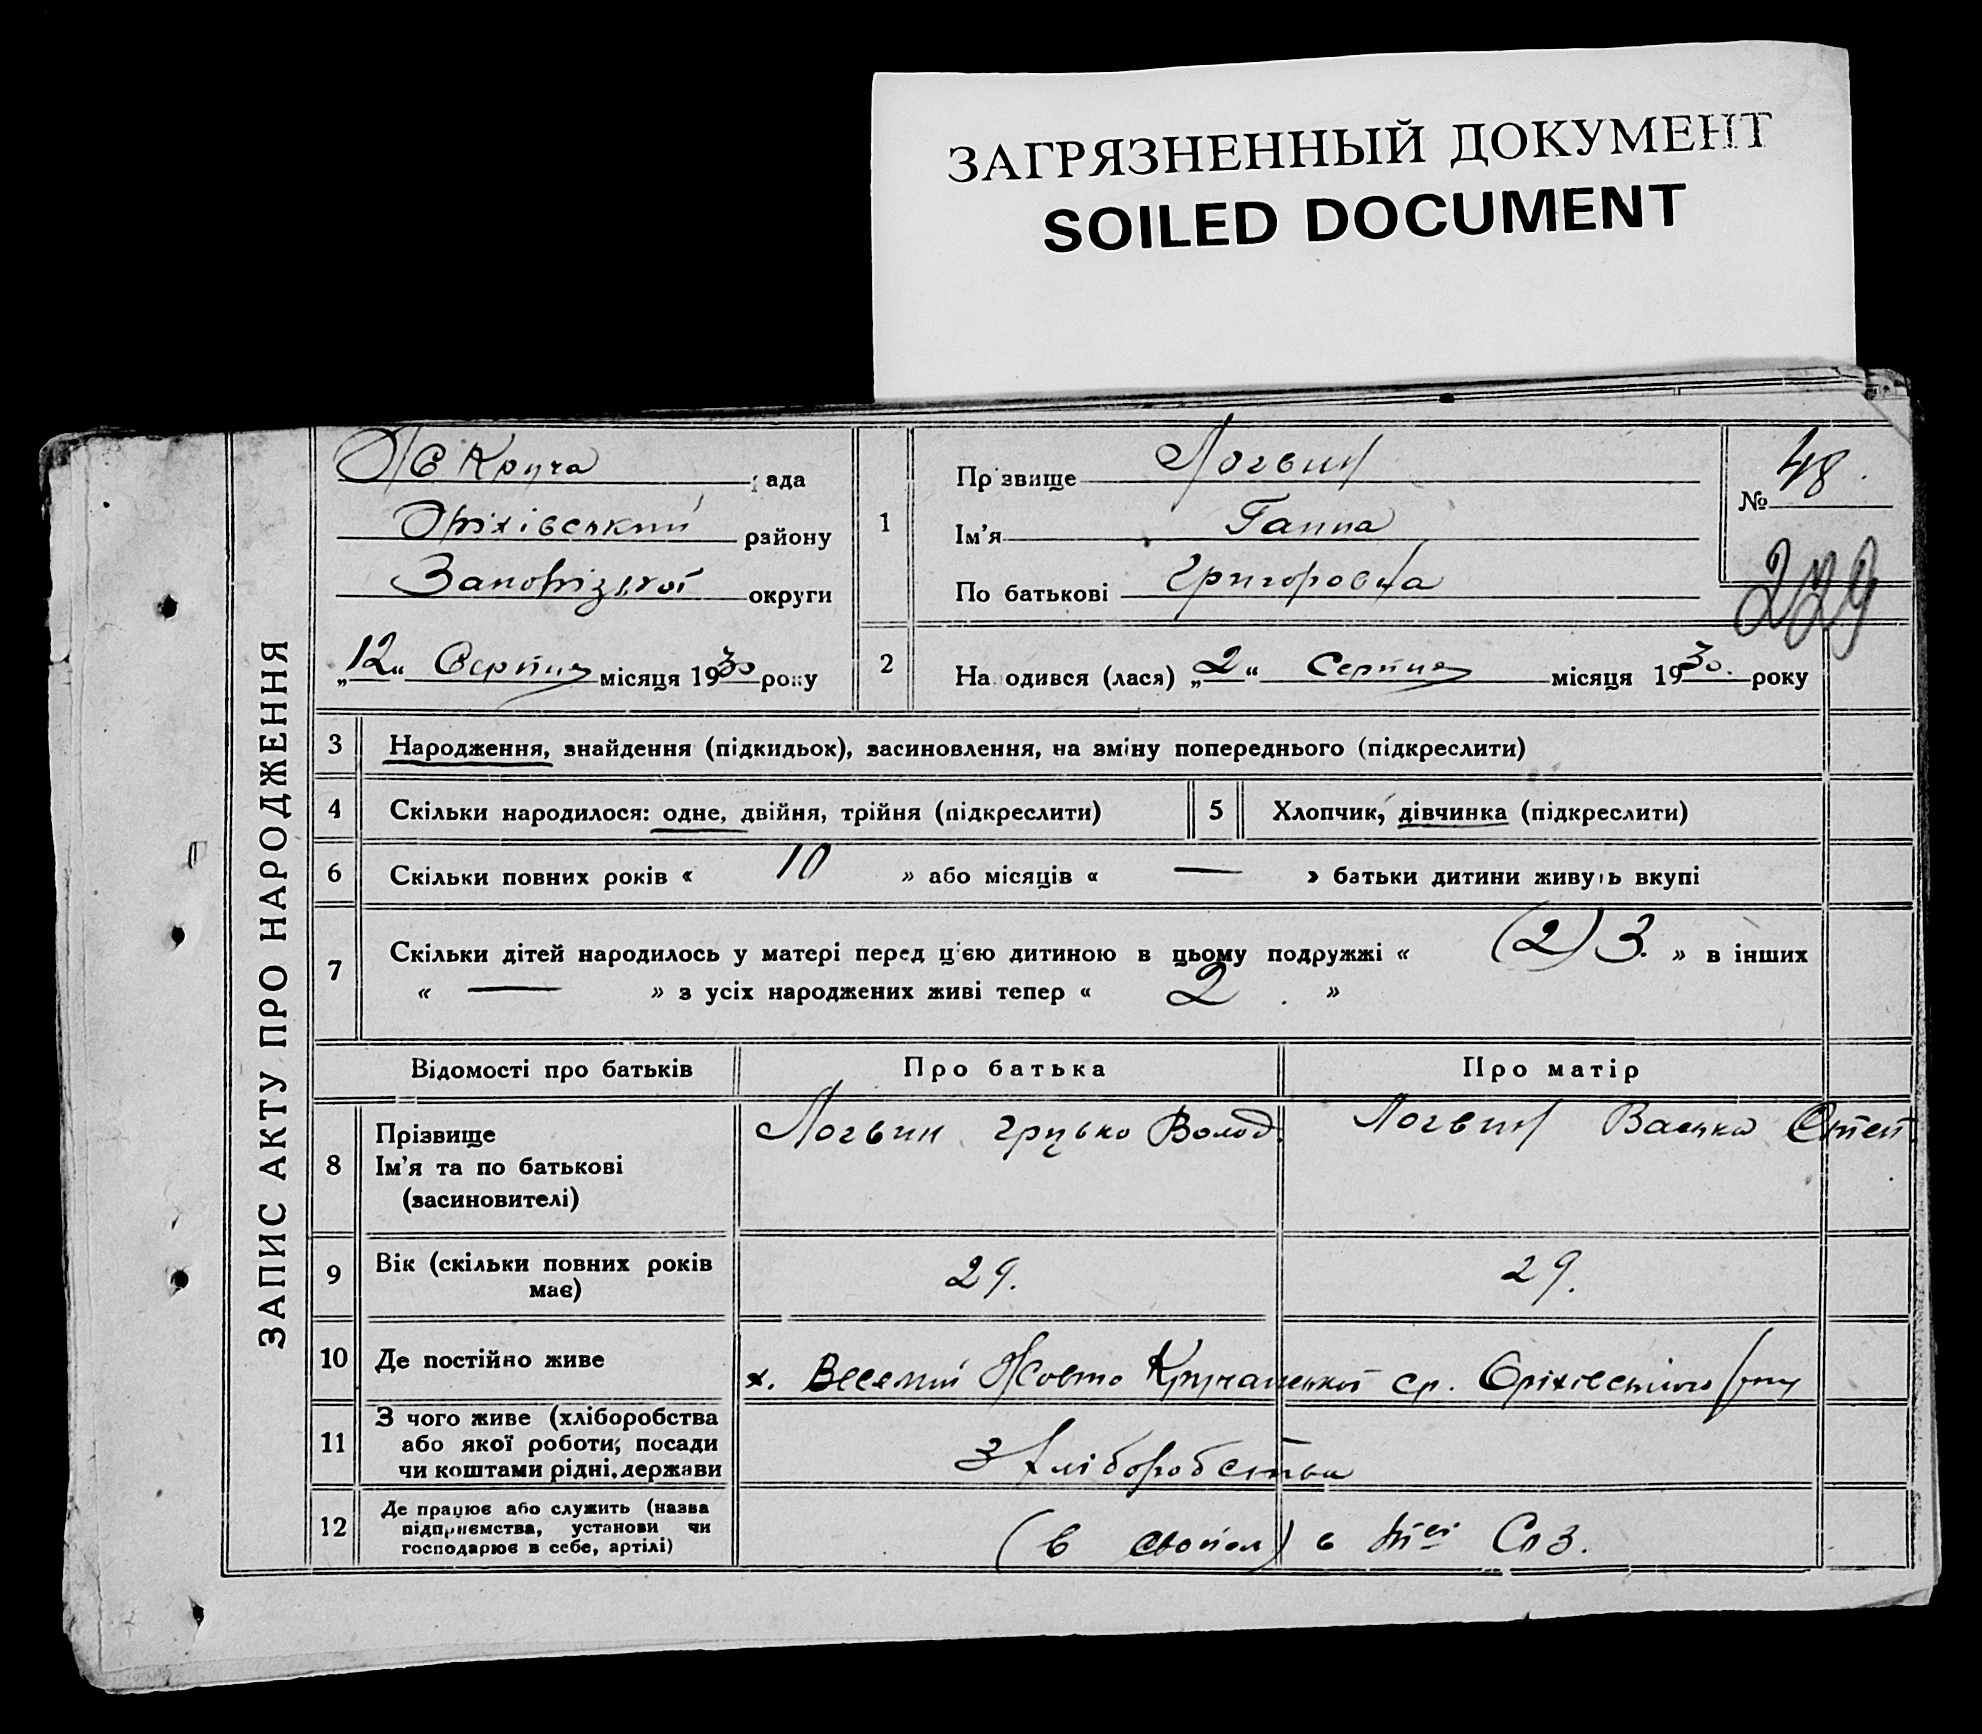 ЗАГРЯЗНЕННЫЙ ДОКУМЕНТ
SOILED DOCUMENT
ЗАПИС АКТУ ПРО НАРОДЖЕННЯ
Ж Круча рада
Оріхівський району
Запорізької округи
„12“ Серпня місяця 1930 року
1
Прізвище Логвин
Ім'я Ганна
По батькові Григоровна
№ 48
229
2 Народився (лася) „2“ Серпня місяця 1930. року
3 Народження, знайдення (підкидьок), засиновлення, на зміну попереднього (підкреслити)
4 Скільки народилося: одне, двійня, трійня (підкреслити) 5 Хлопчик, дівчинка (підкреслити)
6 Скільки повних років « 10 » або місяців « — » батьки дитини живуть вкупі
7 Скільки дітей народилось у матері перед цією дитиною в цьому подружжі « (2) 3. » в інших
« — » з усіх народжених живі тепер « 2 . »
Відомості про батьків Про батька Про матір
8 Прізвище
Ім'я та по батькові
(засиновителі)
Логвин Грицько Волод. Логвин Васька Степ.
9 Вік (скільки повних років
має)
29. 29.
10 Де постійно живе
х. Веселий Жовто Кручанської ср. Оріхівського
11 З чого живе (хліборобства
або якої роботи, посади
чи коштами рідні, держави
З хліборобства
12 Де працює або служить (назва
підприємства, установи чи
господарює в себе, артілі)
(в своїм) в СОЗ.